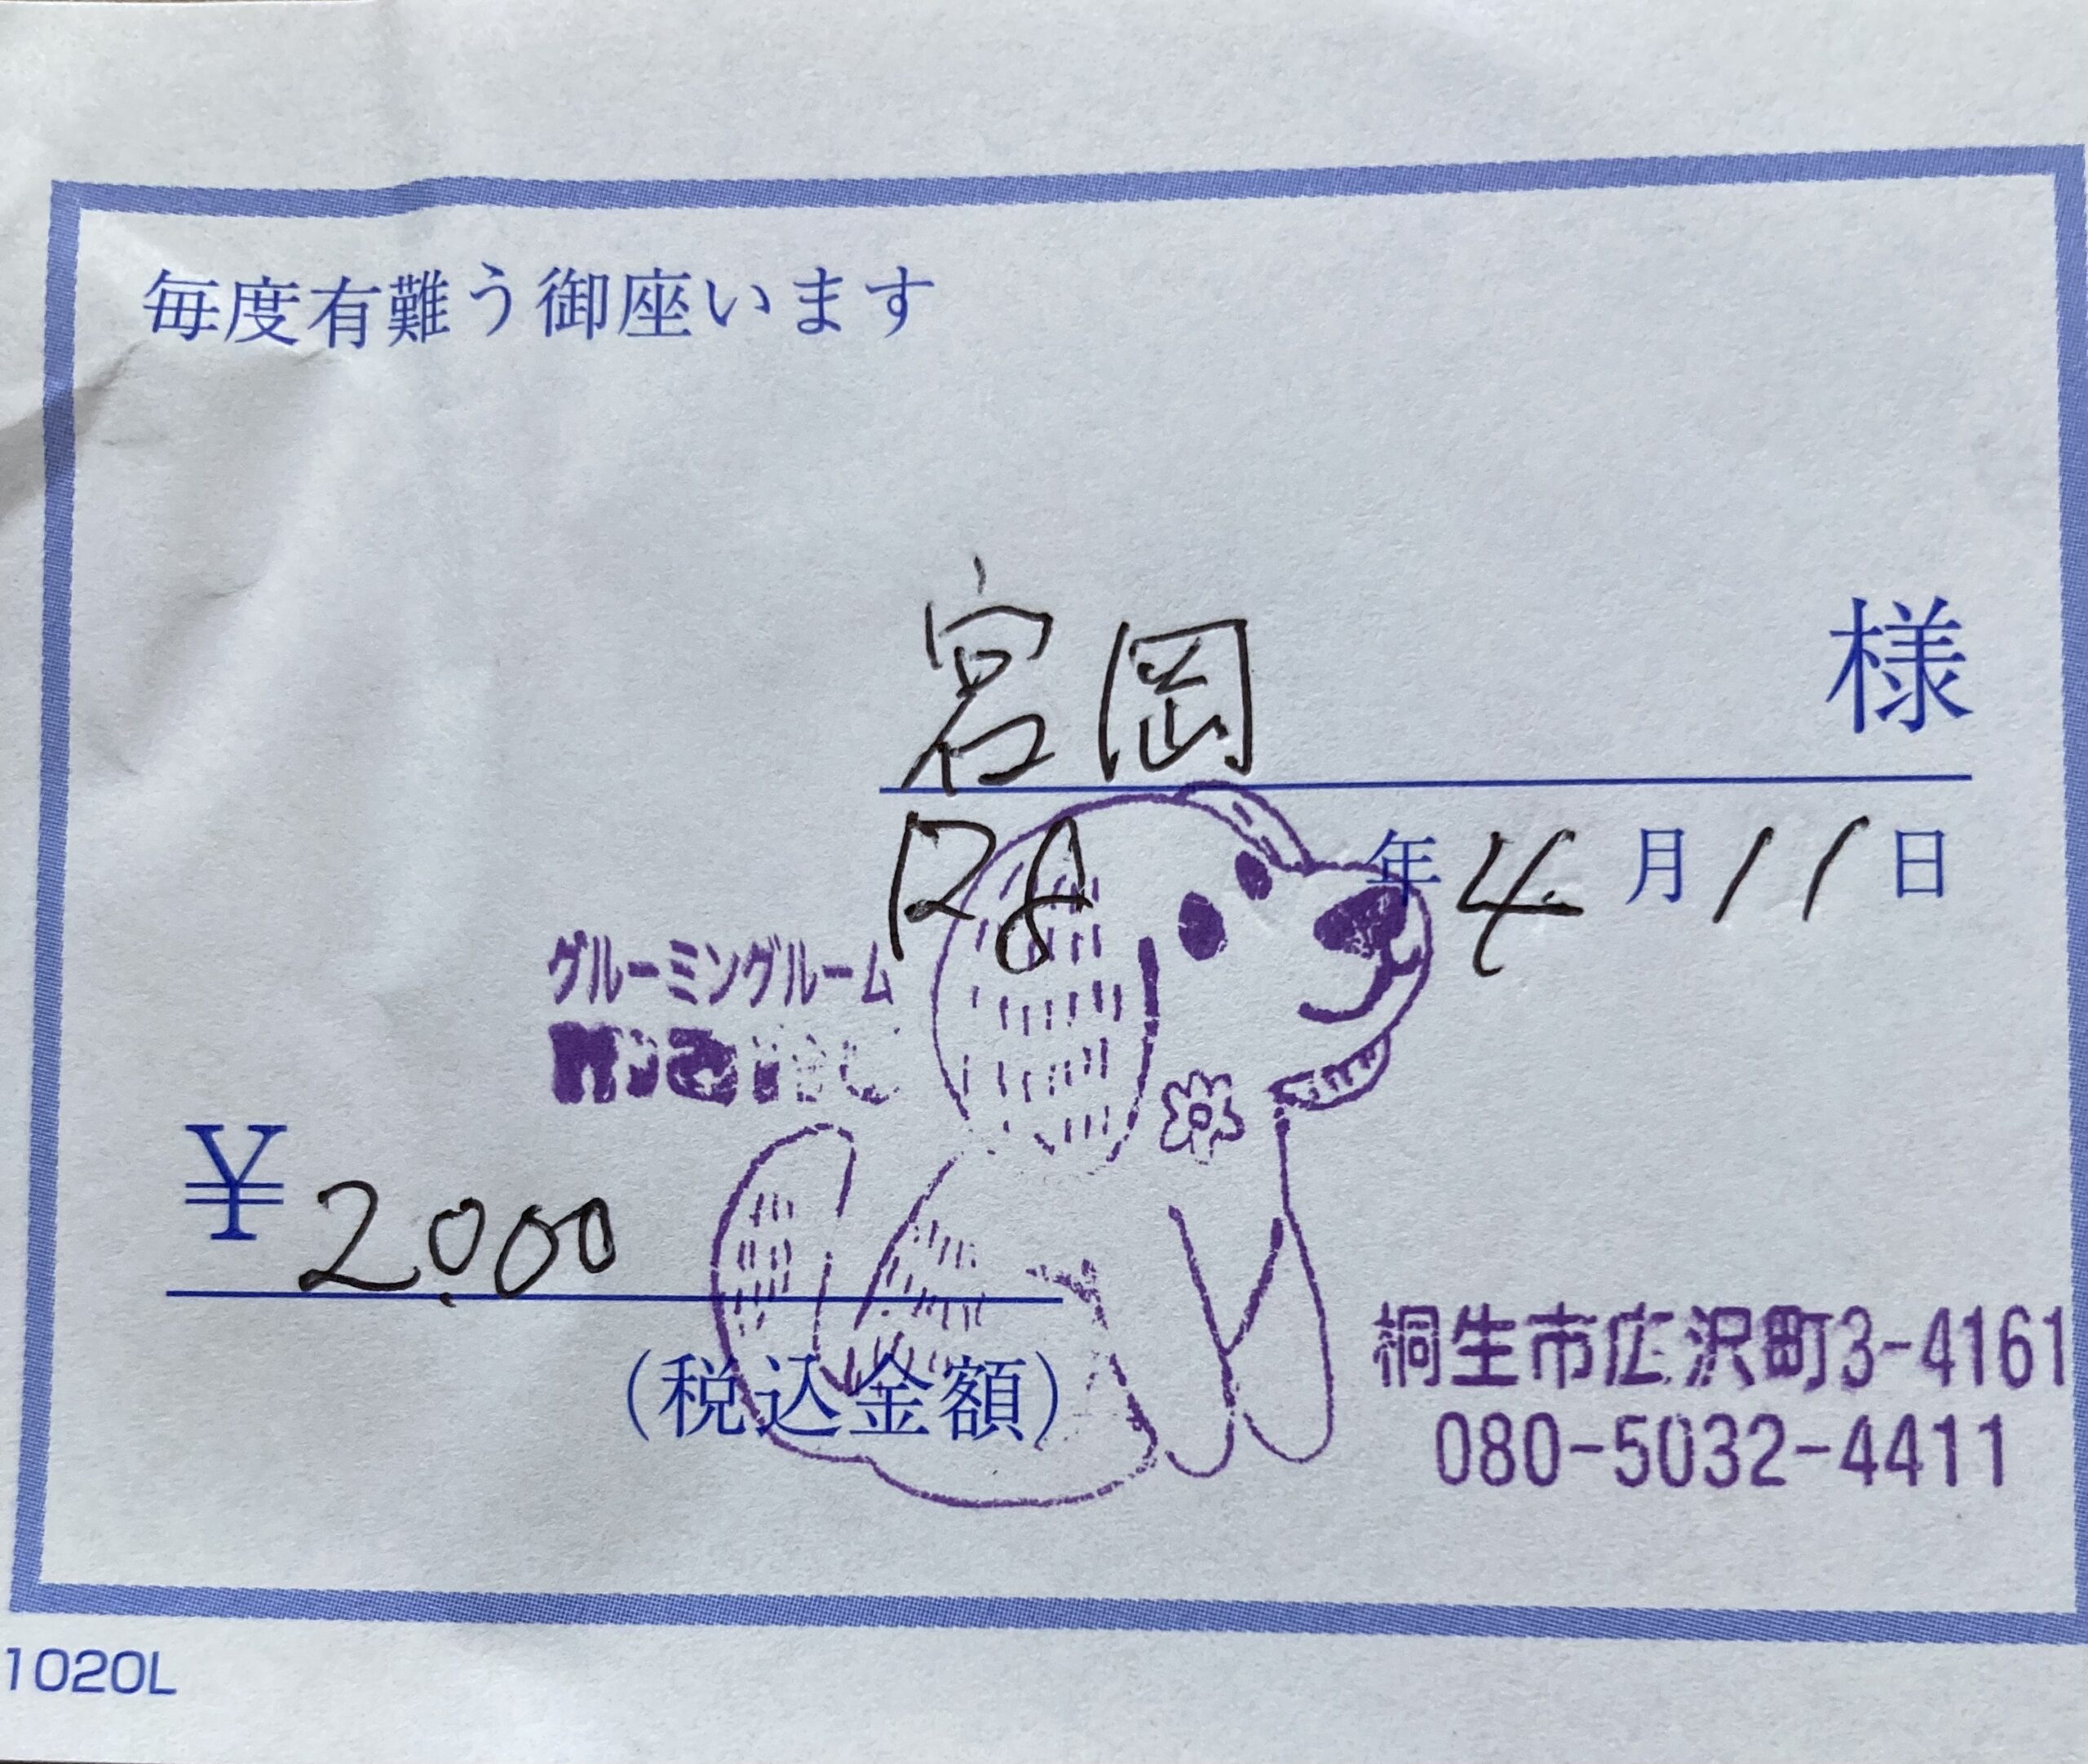 毎度有難う御座います
宮岡 様
R8年4月11日
グルーミングルーム
¥2,000
(税込金額)
桐生市広沢町3-4161
080-5032-4411
1020L